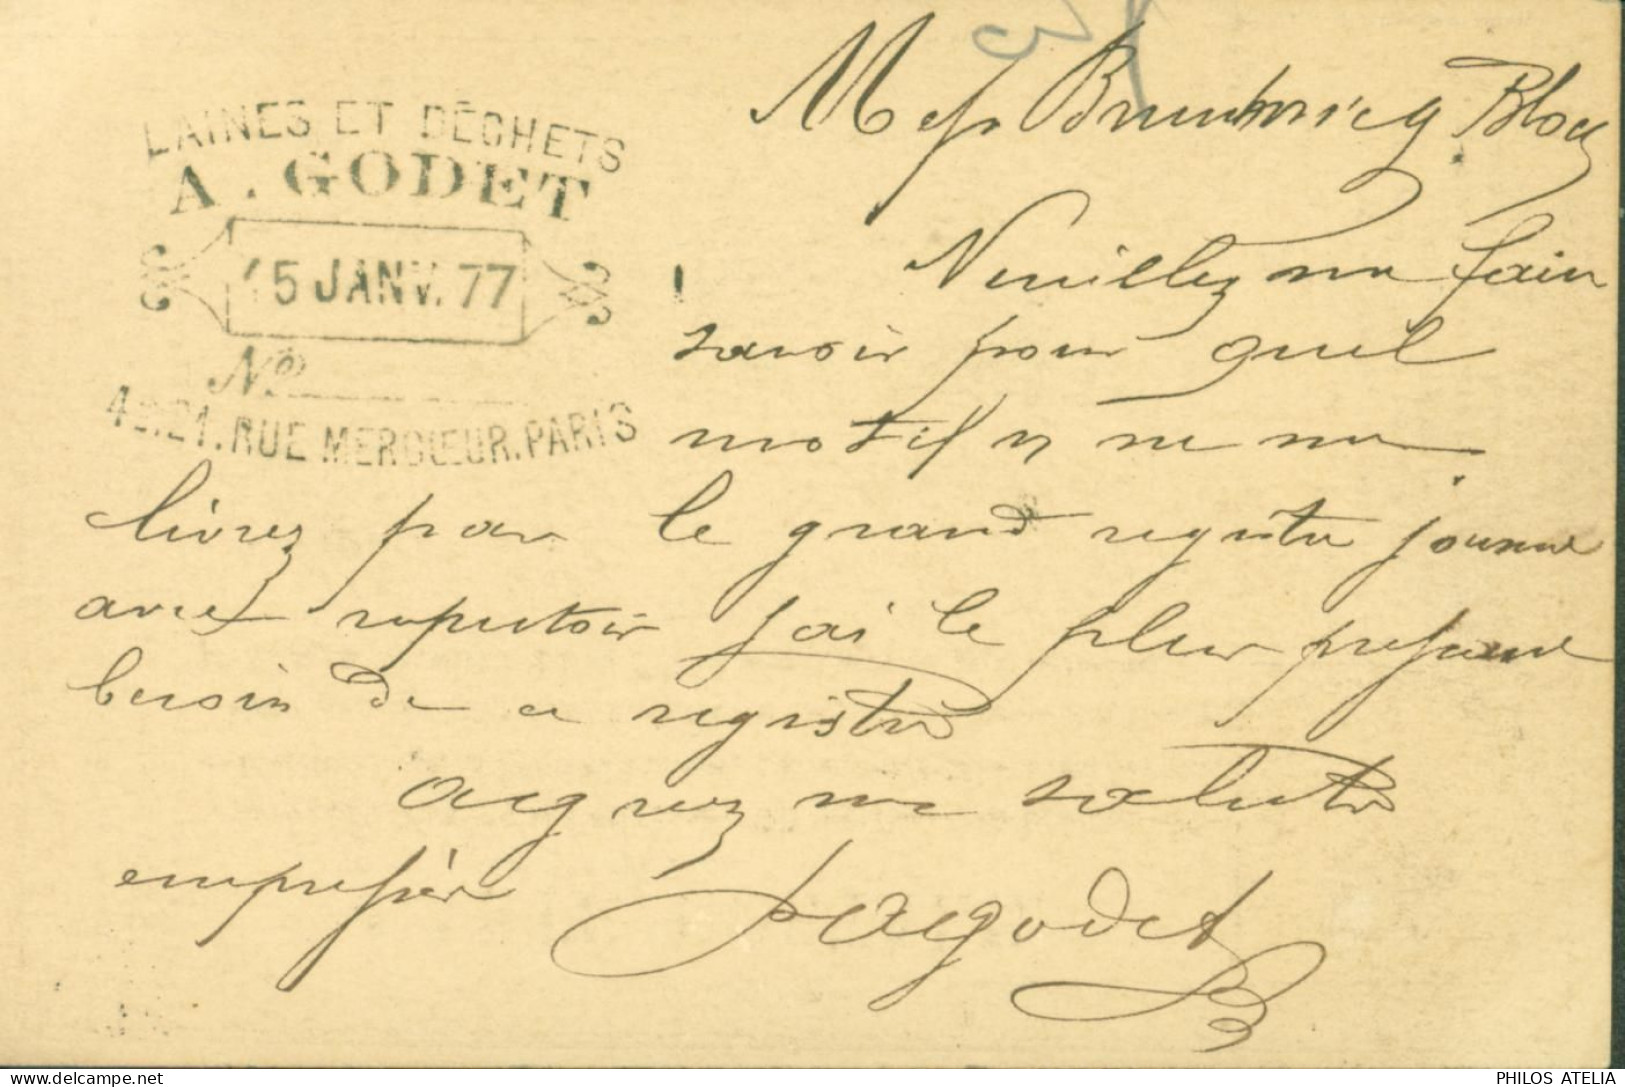 LAINES ET DÉCHETS
A. GODET
15 JANV. 77
No
RUE MERCŒUR. PARIS
Mess Bloch
Veuillez me faire
savoir pour quel
motif vs ne me
livrez pas le grand registre journal
avec repertoir j'ai le plus pressant
besoin de ce registre
agréez me salutes
empressées
Godet
PHILOS ATELIA